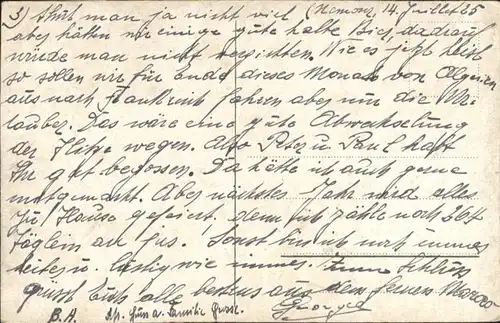 3) thut man ja nicht viel (Nemours, 14. Juillet 65
aber hätten wir einige gute halbe Bier darauf
würde man nicht verzichten. Wie es jetzt heißt
so sollen wir für Ende dieses Monats von Algerien
aus nach Frankreich fahren aber nur die
Urlauber. Das wäre eine gute Abwechselung
der Hitze wegen. Also Peter u. Paul habt
Ihr gut begossen. Da hätte ich auch gerne
mitgemacht. Aber nächstes Jahr wird alles
zu Hause gefeiert. denn ich zähle noch 264
Täglein au jus. Sonst bin ich noch immer
heiter u. lustig wie immer. Zum Schluss
grüsst Euch alle bestens aus dem fernen
B. A. a. Familie